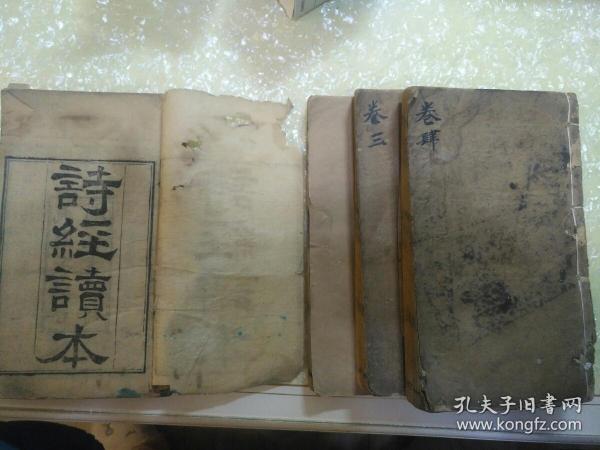 詩經讀本
卷三
卷肆
孔夫子旧書网
www.kongfz.com